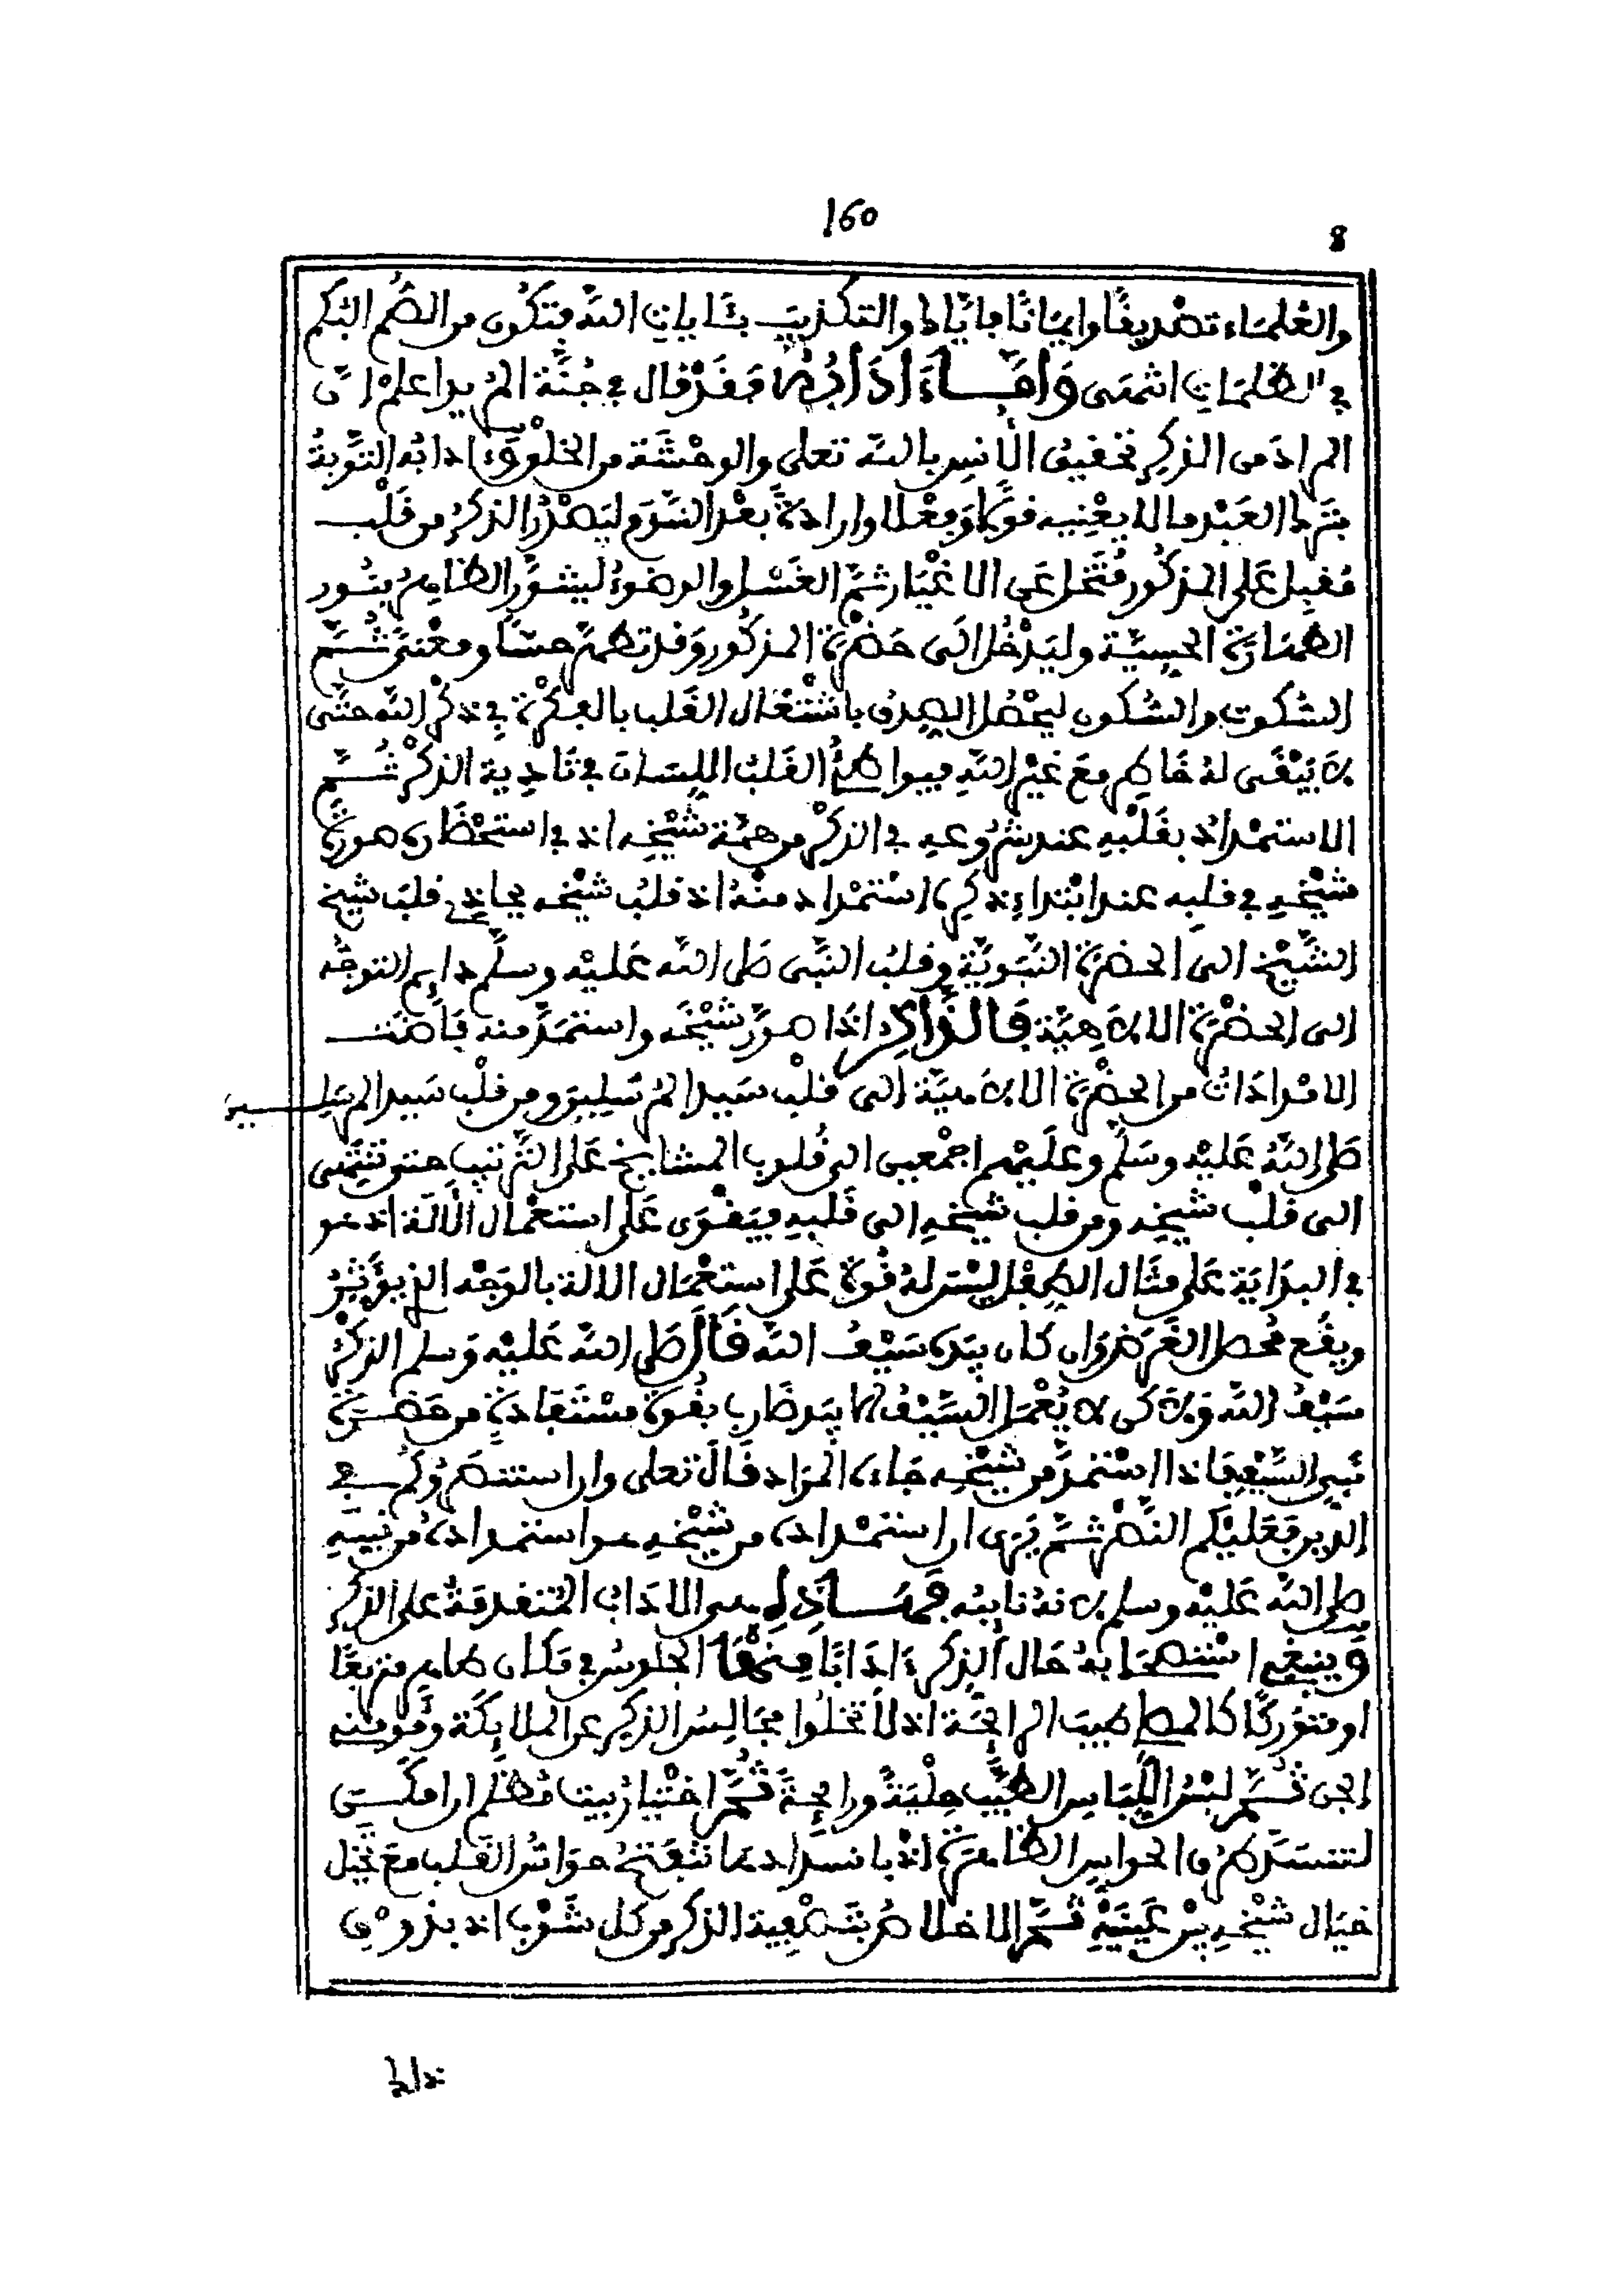 160
8
والعلماء تصديقا وايمانا فاياك والتكذيب بـئايات الله فتكون من الصم البكم
في الظلمات انتهى وَأمَّــا ءَادَابُهُ فَقَدْ قال في جُنَّة المُريد اعلمْ انّ
المراد من الذكرِ تحقيق الأنسِ بالله تعلى والوحْشة من الخلْق وءادابُه التَّوبةُ
بترك العَبْد ما لا يعْنِيه قولًا وَفِعْلا وارادةً بعْد النَّدَم ليَصْدُرَ الذكرُ من قَلْب
مُقبِل عَلى المذكُور مُتَخل عَن الاغْيَار ثمَّ الغَسْل والوضوءُ ليتنوَّر الظاهِرُ بنُور
الطهارة الحِسِيَّة وليَدْخُل الَى حَضْرَةِ المذكُور وَقد تطهَّر حسًّا ومعْنىً ثُــمَّ
السُّكوت والسُّكون ليحْصُل الصِدق باشْتغال القَلب بالفِكْرة فِي ذكْر الله حتَّى
لَا يَبْقَى لهُ خَاطِر معَ غيْر اللهِ فيواطِئُ القَلبُ اللِسَانَ في تَادِية الذكْر ثُــمَّ
الاستمْدادُ بقَلْبِهِ عند شُرُوعِهِ في الذكْر من همَّة شيْخِه اذ في استحْظَارِه صورةَ
شيْخِهِ في قلبِه عند ابْتداءِ ذكرِه اسْتمْداد منْهُ اذ قلبُ شيْخه يحاذِي قلبَ شيخ
الشَّيْخ الى الحضرةِ النَّبَوِيَّةِ وقلبُ النَّبي صَلى الله عَليْه وسلَّم دايم التوجُّه
الى الحضْرةِ الالَاهِيَّة فَالذَّاكِر اذَا صوَّر شيْخَه واستمَدَّ منه فَاضَت
الامْدادَاتُ من الحضْرة الالَاهيَّة الى قلْب سَيد المُرسَلين ومن قلْب سَيد المرسليــن
صَلى اللهُ عَليْه وسَلَّم وعلَيْهم اجْمعين الى قُلوب المشايخ عَلى التَّرتيب حتى تنتهَى
الى قلْب شيخِه ومن قلب شيْخهِ الى قَلبِهِ فيَقْوَى عَلى استعْمال الآلة اذ هو
في البدَاية عَلى مثَال الطفْل ليْسَ لهُ قُوة عَلى استعْمَال الالة بالوَجْه الذي يوَثِرُ
ويقْع مُحصل الغَرَض وَان كان بيَدِه سَيْفُ الله قَالَ صَلى الله عَليْه وَسلم الذكْرُ
سَيْفُ الله وَلَاكن لَا يُعْمَل السَّيْفُ الا بيَد ضَارِب بقُوة مسْتَفَادة من حَضــرَةِ
نَبِي السَّيْفِ فاذا اسْتمدَّ من شيْخِه جَاءه المدَاد قَالَ تعلى وان استنصَرُوكُم في
الدِّين فَعَليْكم النَّصْر ثمَّ يَرَى ان استمْدادَه من شيْخِهِ هو استمدادهُ من نَبيّهِ
صَلى الله عَليْه وسلم لانهُ نايبُه فَهَــاذِهِ هي الادَاب المُتقدمة على الذكر
وَينبغِي اسْتصحابهُ حَال الذِكر ءَادَابًا مِنْهَا الجلوسُ في مَكان طاهر متربِّعًا
او متوَركًا كالمصلي طيبَ الرايحَة اذ لا تخلُوا مجَالِسُ الذكر عن الملايكَة وَمُومِنِي
الجن ثُــمَّ لبْسُ اللِّبَاس الطيِّب حِلْيَةً ورايحةً ثُمَّ اخْتيَارُ بيت مُظلم ان امكــنَ
لتنسَدَّ طرُق الحواسِ الظاهرة اذ بانسدادها تنْفتحُ حوَاسُّ القَلب معَ تخيُّل
خيَال شيْخِه بيْن عَيْنَيْهِ ثُــمَّ الاخلاصُ بتَصْفِية الذكر من كل شَوْب اذ بذوقِ